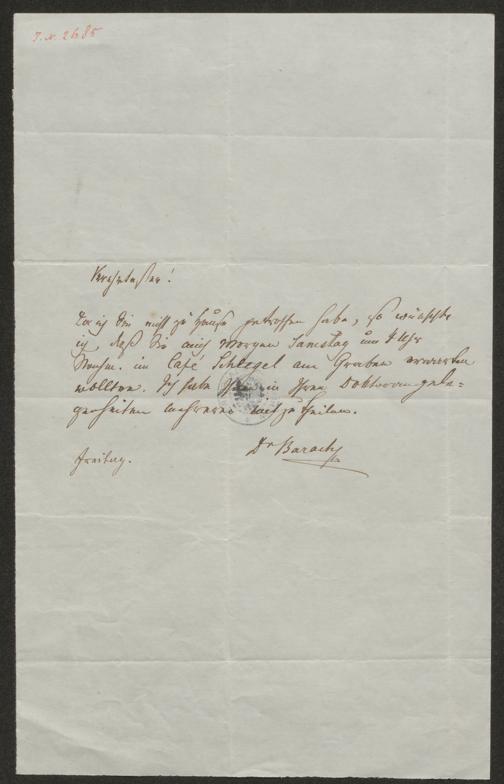 I. N. 2685
Verehrtester!
Da ich Sie nicht zu Hause getroffen habe, so wünschte
ich, daß Sie mich Morgen Samstag um 4 Uhr
Nachm. im Café Schlegel am Graben erwarten
wollten. Ich habe Ihnen in Ihren Doktorangele-
genheiten mehreres mitzutheilen.
Freitag.
Dr Barach